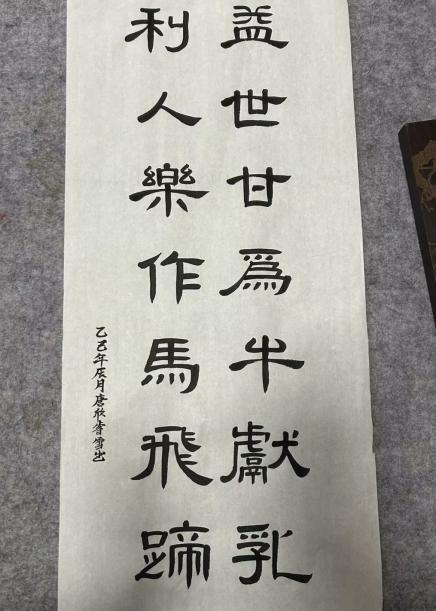 益世甘爲牛獻乳
利人樂作馬飛蹄
乙巳年辰月唐欣書雪出